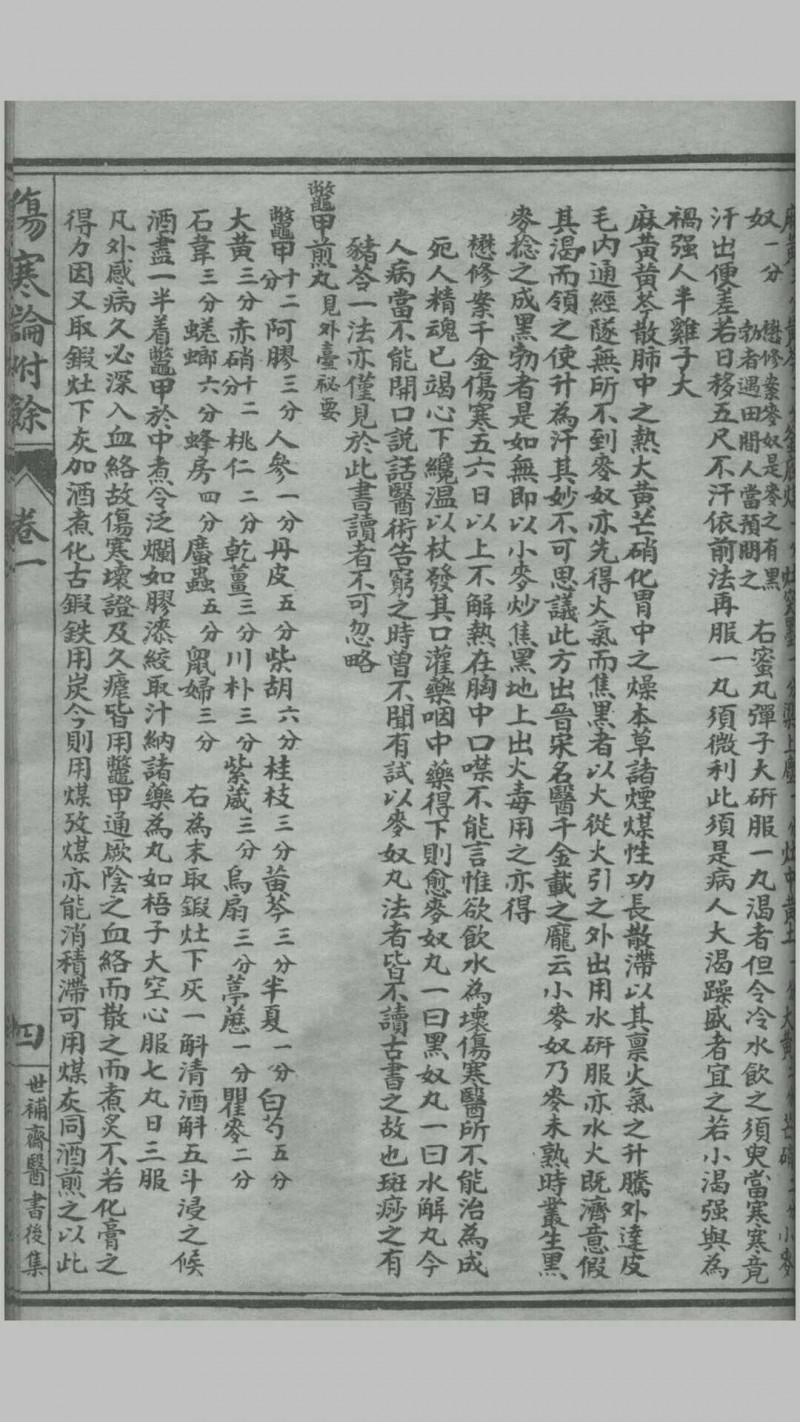 麻黃二分黃芩一分釜底煤一分灶突墨一分梁上塵一分灶中黃土一分大黃二分芒硝二分小麥
奴一分 懋修案麥奴是麥之有黑勃者遇田間人當預問之 右蜜丸彈子大研服一丸渴者但令冷水飲之須臾當寒寒竟
汗出便差若日移五尺不汗依前法再服一丸須微利此須是病人大渴躁盛者宜之若小渴强與為
禍强人半雞子大
麻黃黃芩散肺中之熱大黃芒硝化胃中之燥本草諸煙煤性功長散滯以其禀火氣之升騰外達皮
毛內通經隧無所不到麥奴亦先得火氣而焦黑者以火從火引之外出用水研服亦水火既濟意假
其渴而領之使升為汗其妙不可思議此方出晉宋名醫千金載之龐云小麥奴乃麥未熟時叢生黑
麥捻之成黑勃者是如無即以小麥炒焦黑地上出火毒用之亦得
懋修案千金傷寒五六日以上不解熱在胸中口噤不能言惟欲飲水為壞傷寒醫所不能治為成
死人精魂已竭心下纔温以杖發其口灌藥咽中藥得下則愈麥奴丸一曰黑奴丸一曰水解丸今
人病當不能開口説話醫術告窮之時曾不聞有試以麥奴丸法者皆不讀古書之故也斑痧之有
豬苓一法亦僅見於此書讀者不可忽略
鼈甲煎丸見外臺祕要
鼈甲十二分 阿膠三分 人參一分 丹皮五分 柴胡六分 桂枝三分 黃芩三分 半夏一分 白芍五分
大黃三分 赤硝十二分 桃仁二分 乾薑三分 川朴三分 紫葳三分 烏扇三分 葶藶一分 瞿麥二分
石韋三分 蜣螂六分 蜂房四分 䗪蟲五分 鼠婦三分 右為末取鍛灶下灰一斛清酒斛五斗浸之候
酒盡一半着鼈甲於中煮令泛爛如膠漆絞取汁納諸藥為丸如梧子大空心服七丸日三服
凡外感病久必深入血絡故傷寒壞證及久瘧皆用鼈甲通厥陰之血絡而散之而煮炙不若化膏之
得力因又取鍛灶下灰加酒煮化古鍛鉄用炭今則用煤攷煤亦能消積滯可用煤灰同酒煎之以此
傷寒論附餘 卷一 四 世補齋醫書後集